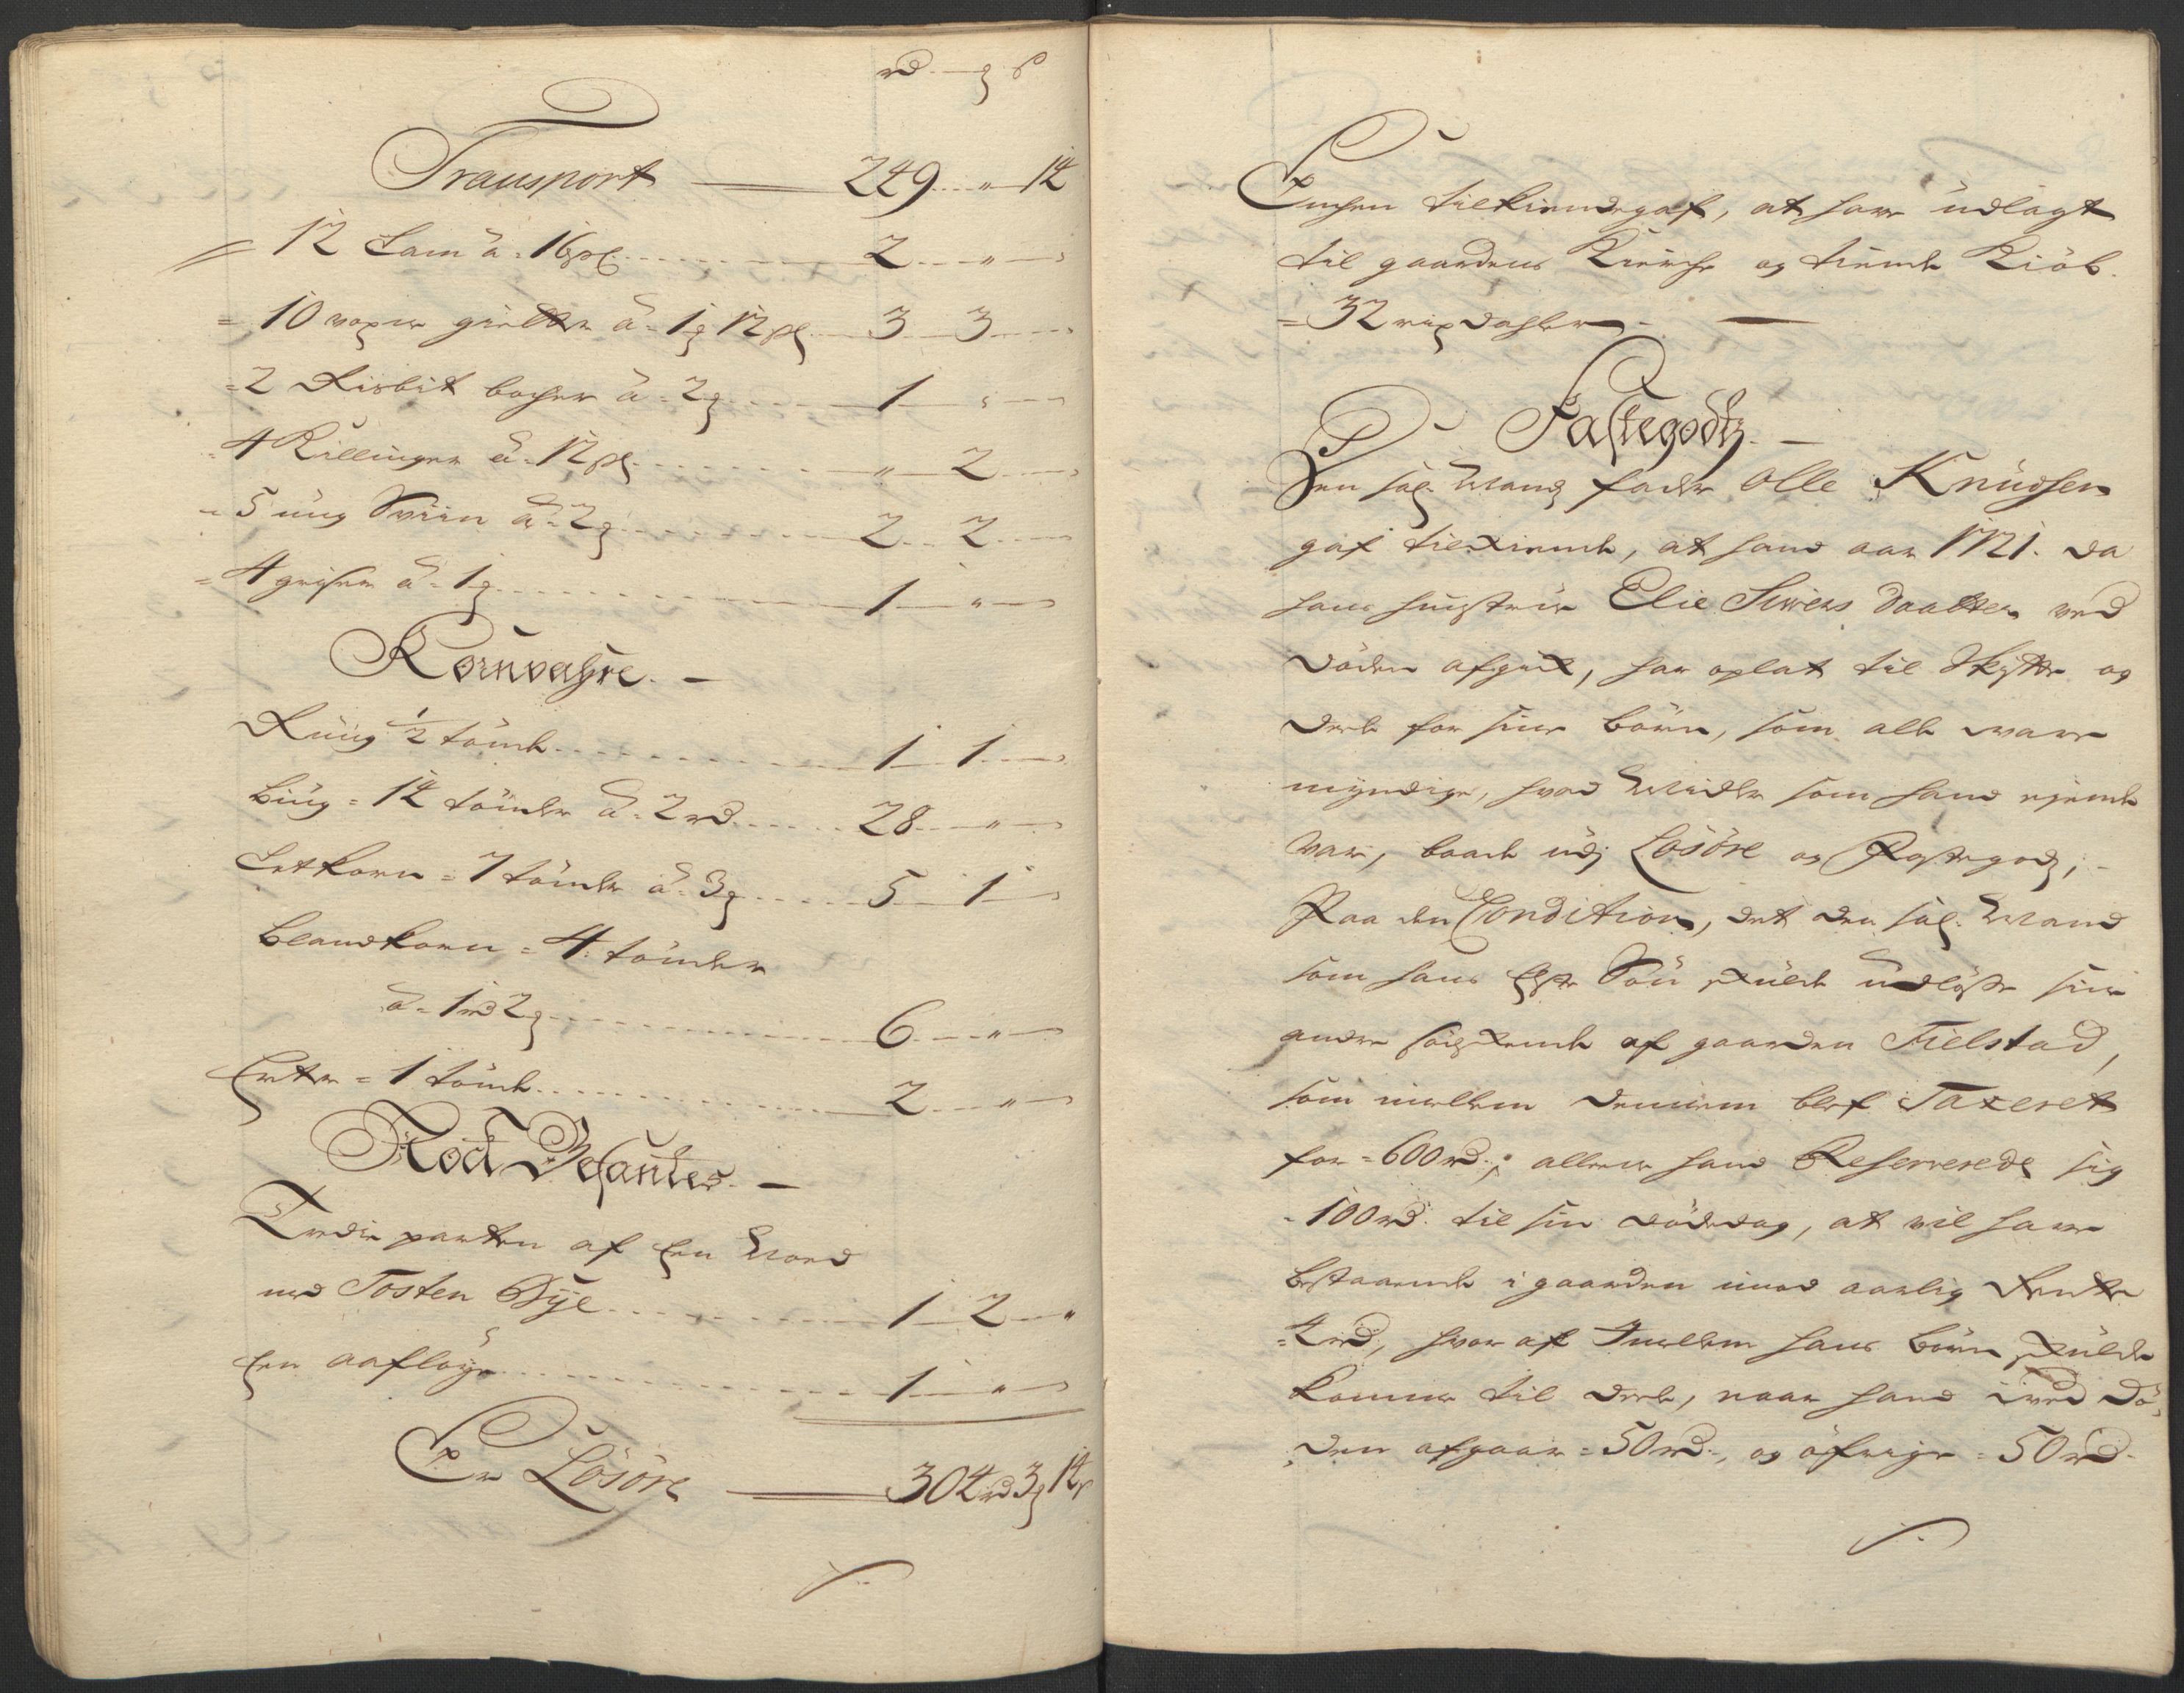 rd — ß
Transport — 249 .. " — 14
12 Lam à 16 ß — 2 — " —
= 10 voxne gietter à 1 12 ß — 3 — 3 —
= 2 Kisbit bocher à 2 — 1 — " —
4 Killinger à 12 ß — " — 2 —
= 5 ung Sviin à 2 — 2 — 2 —
= 4 griser à 1 — 1 — " —
Kornvahre. —
Rüüg ½ tönde — 1 — 1 —
Büüg = 14 tönder à 2 rd — 28 — " —
Letkorn = 7 tönder à 3 — 5 — 1 —
Blandkorn = 4 tönder
à 1 rd 2 — 6 — " —
Erter = 1 tönde — 2 — " —
Tredie parten af en
med Tosten Bye — 1 — 2 — "
En — 1 — " —
Er Lösöre — 304 rd 3 14 ß
Enchen tilkiendegaf, at have üdlagt
til gaardens Kierche og tiende Kiöb.
= 32 rixdahler —
Fastegodtz. —
Den sal. Mands fader Olle Knudsen
gaf tilkiende, at hand aar 1721. da
hans hüstrüe Elie Siwers daatter ved
döden afgik, har oplat til Skiftte og
deele for sine börn, som alle vare
myndige, hvad Midler som hand ejende
var, baade udj Lösöre og Fastegodz, –
Paa den Condition, det den sal. Mand
som hans Elste Sön skulde udlöse sine
andre söschende af gaarden Fielstad,
som mellem dennem blef Taxeret
for = 600 rd.; allene hand Reserverede sig
= 100 rd. til sin dödedag, at vil have
bestaaende i gaarden imod aarlig Rente
= 4 rd, hvor af Imellem hans börn skulde
komme til deele, naar hand ved Dö-
den afgaar = 50 rd., og öfrige = 50 rd.